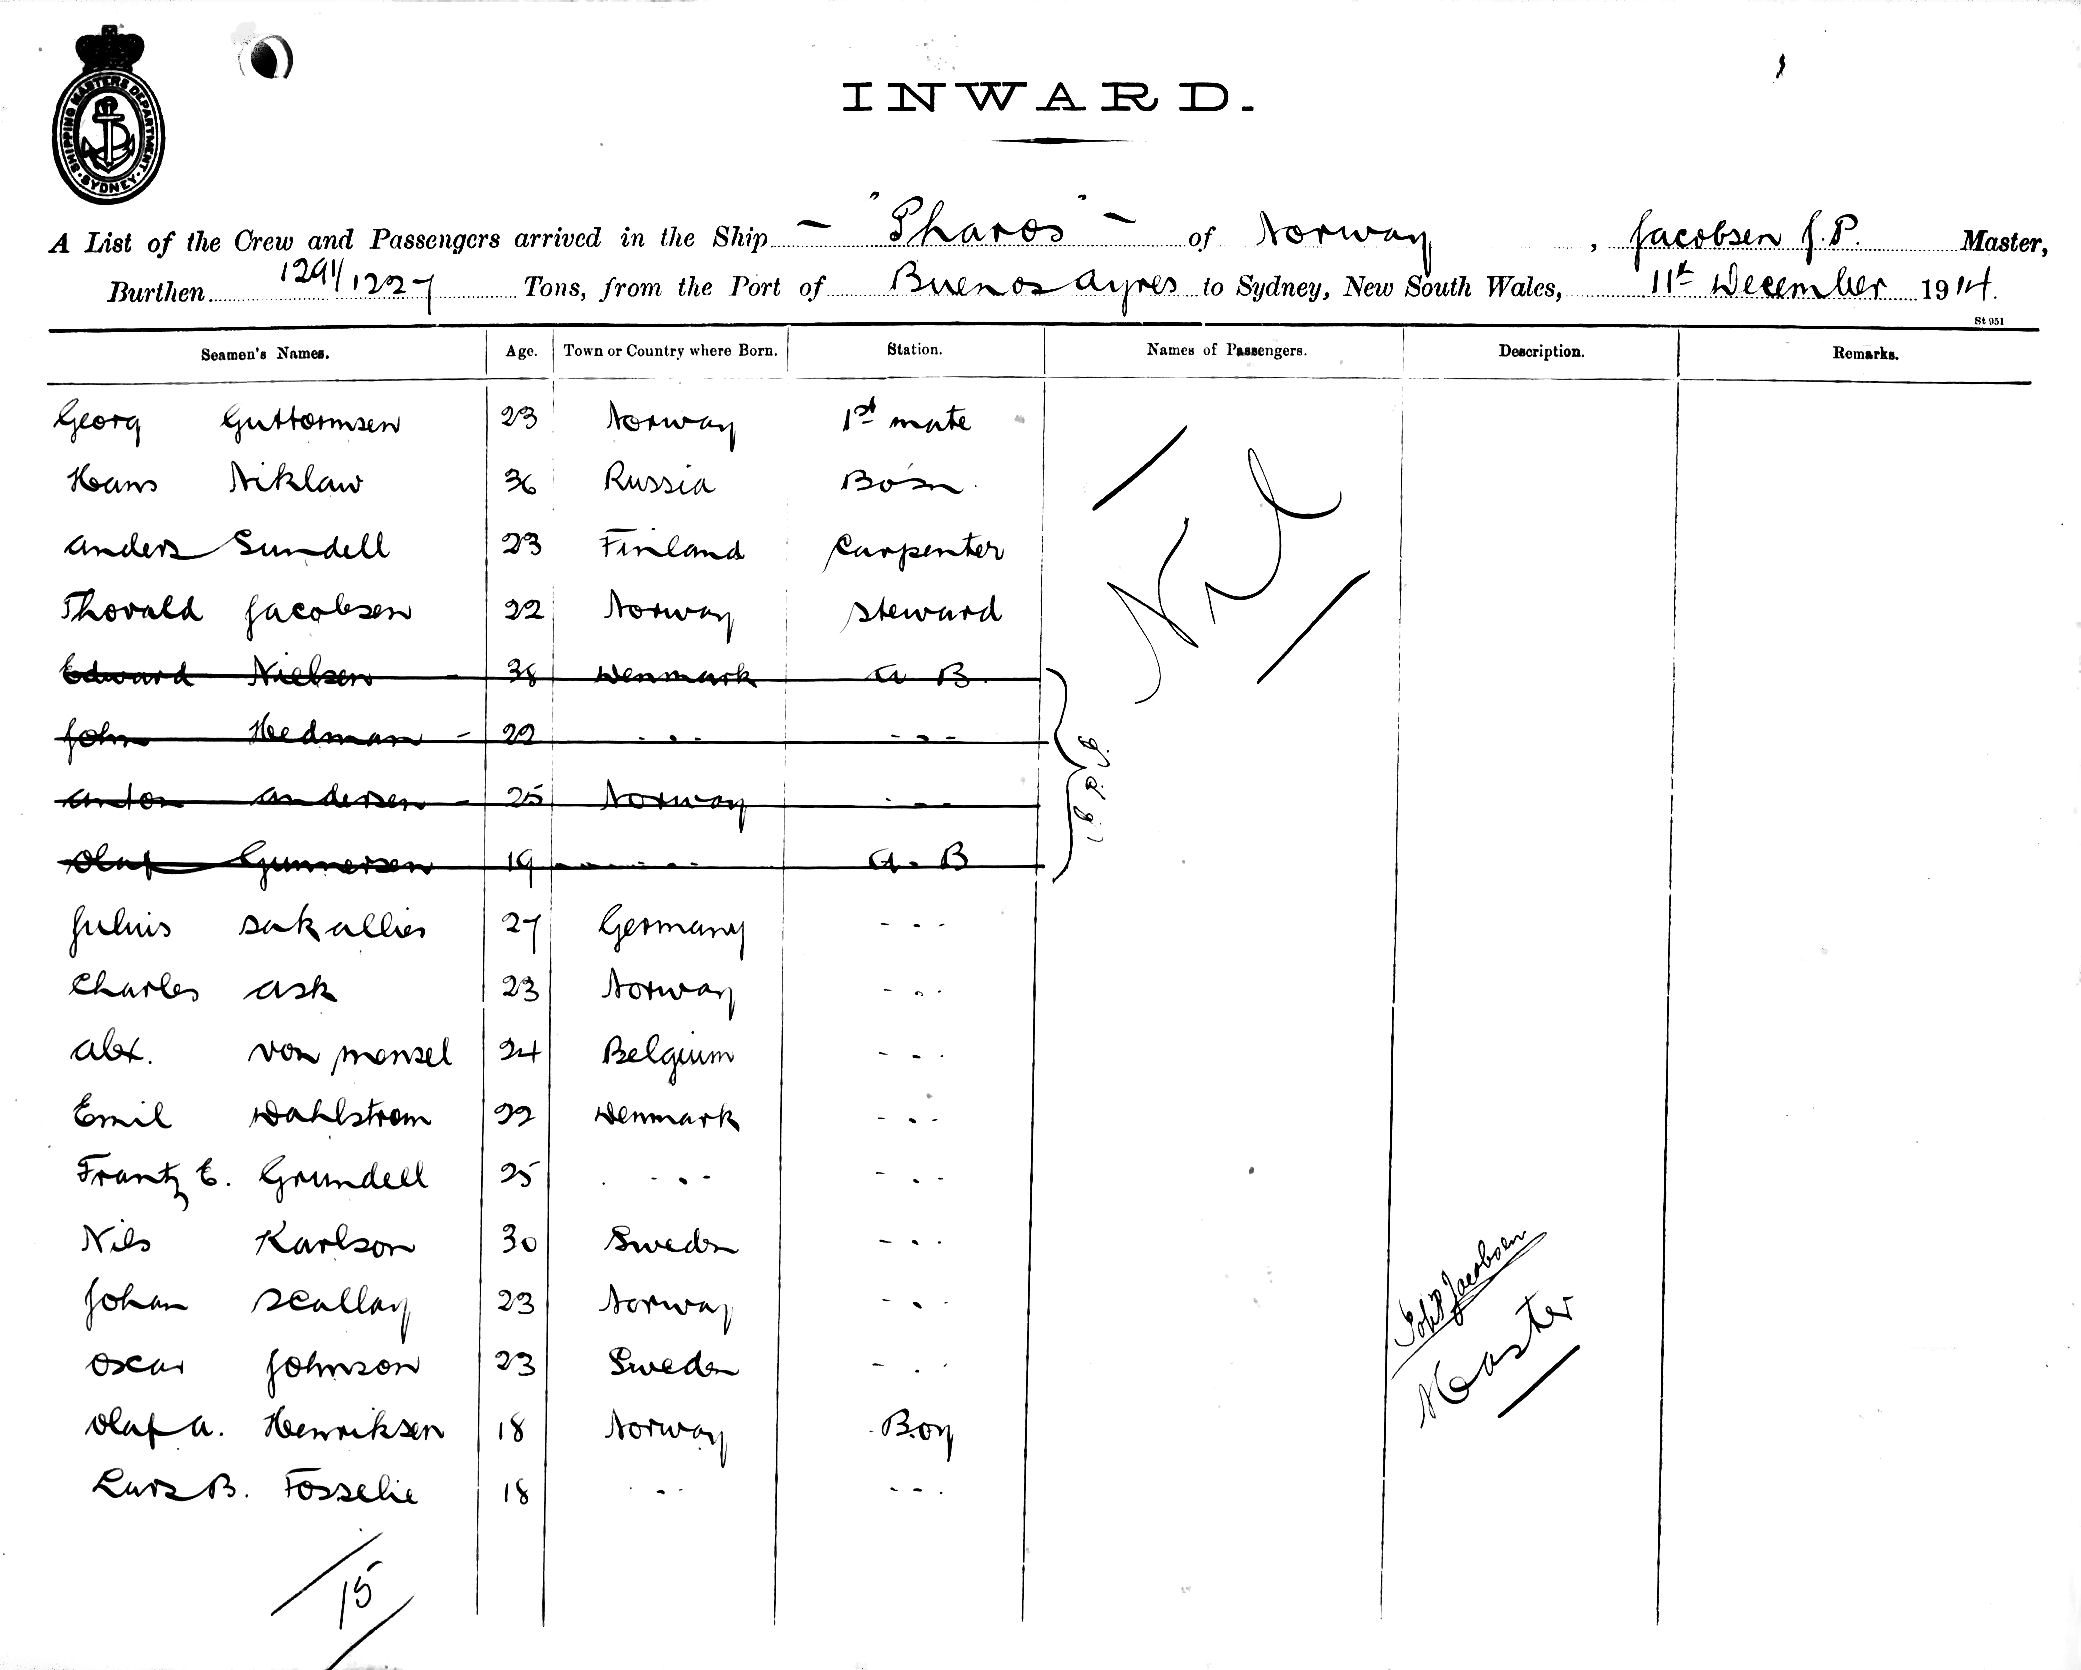 SHIPPING MASTERS DEPARTMENT
SYDNEY
INWARD.
A List of the Crew and Passengers arrived in the Ship "Pharos" of Norway, Jacobsen J. P. Master,
Burthen 1291/1227 Tons, from the Port of Buenos Ayres to Sydney, New South Wales, 11th December 1914.
St 951
Seamen's Names. Age. Town or Country where Born. Station. Names of Passengers. Description. Remarks.
Georg Guttormsen 23 Norway 1st mate
Hans Niklaw 36 Russia Bo'sn
Anders Sundell 23 Finland Carpenter
Thorvald Jacobsen 22 Norway Steward
Nil
Edward Nielsen - 38 Denmark A B.
John Hedman - 22 - . - - . -
Anton Andersen - 25 Norway - . -
Olaf Gunnersen 19 - . - A. B
Julius Sakallies 27 Germany - . -
Charles Ask 23 Norway - . -
Alex. von Mensel 24 Belgium - . -
Emil Dahlstrom 22 Denmark - . -
Frantz E. Grundell 25 - . - - . -
Nils Karlson 30 Sweden - . -
Johan Scallay 23 Norway - . -
Oscar Johnson 23 Sweden - . -
Joh P Jacobsen
Master
Olaf A. Henriksen 18 Norway Boy
Lars B. Fosselie 18 - . - - . -
15